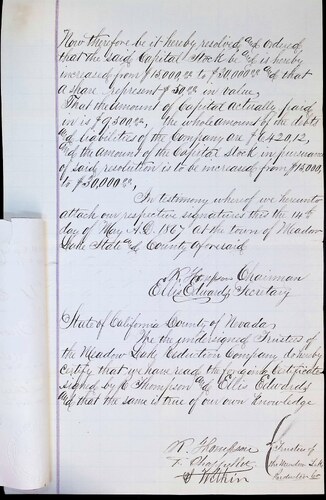 Now therefore be it hereby resolved and ordered
that the said Capital Stock be and is hereby
increased from $15000,00 to $30000,00 and that
a share represent $50,00 in value,
That the amount of Capital actually paid
in is $9500,00, the whole amount by the debts
and liabilities of the Company are $6420,12,
and the amount of the Capital stock in pursuance
of said resolution is to be increased from $15000,
to $30000,00,
In testimony whereof we hereunto
attach our respective signatures this the 14th
day of May A.D. 1867 at the town of Meadow
Lake State and County aforesaid
R. Thompson Chairman
Ellis Edwards, Secretary
State of California County of Nevada,
We the undersigned Trustees of
the Meadow Lake Reduction Company do hereby
certify that we have read the foregoing Certificate
signed by R Thompson and Ellis Edwards
and that the same is true of our own knowledge
R. Thompson
Trustees of
the Meadow Lake